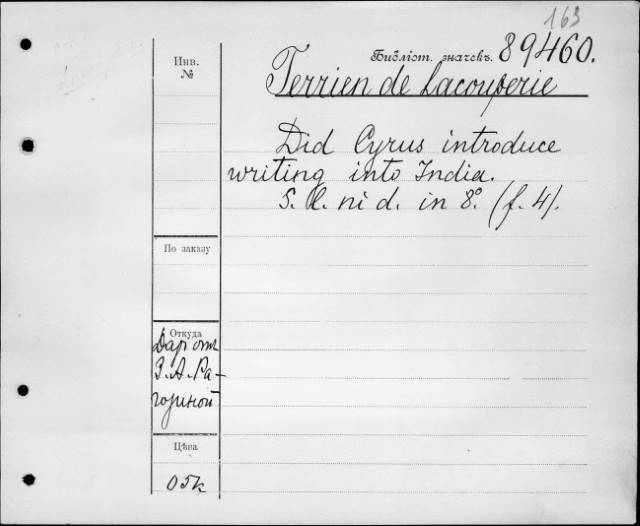 163
Библіот. значекъ. 89460.
Инв.
№
Terrien de Lacouperie
Did Cyrus introduce
writing into India.
S. l. ni d. in 8º. (f. 4).
По заказу
Откуда
Даръ отъ
З. А. Ра-
гозиной
Цѣна
05к